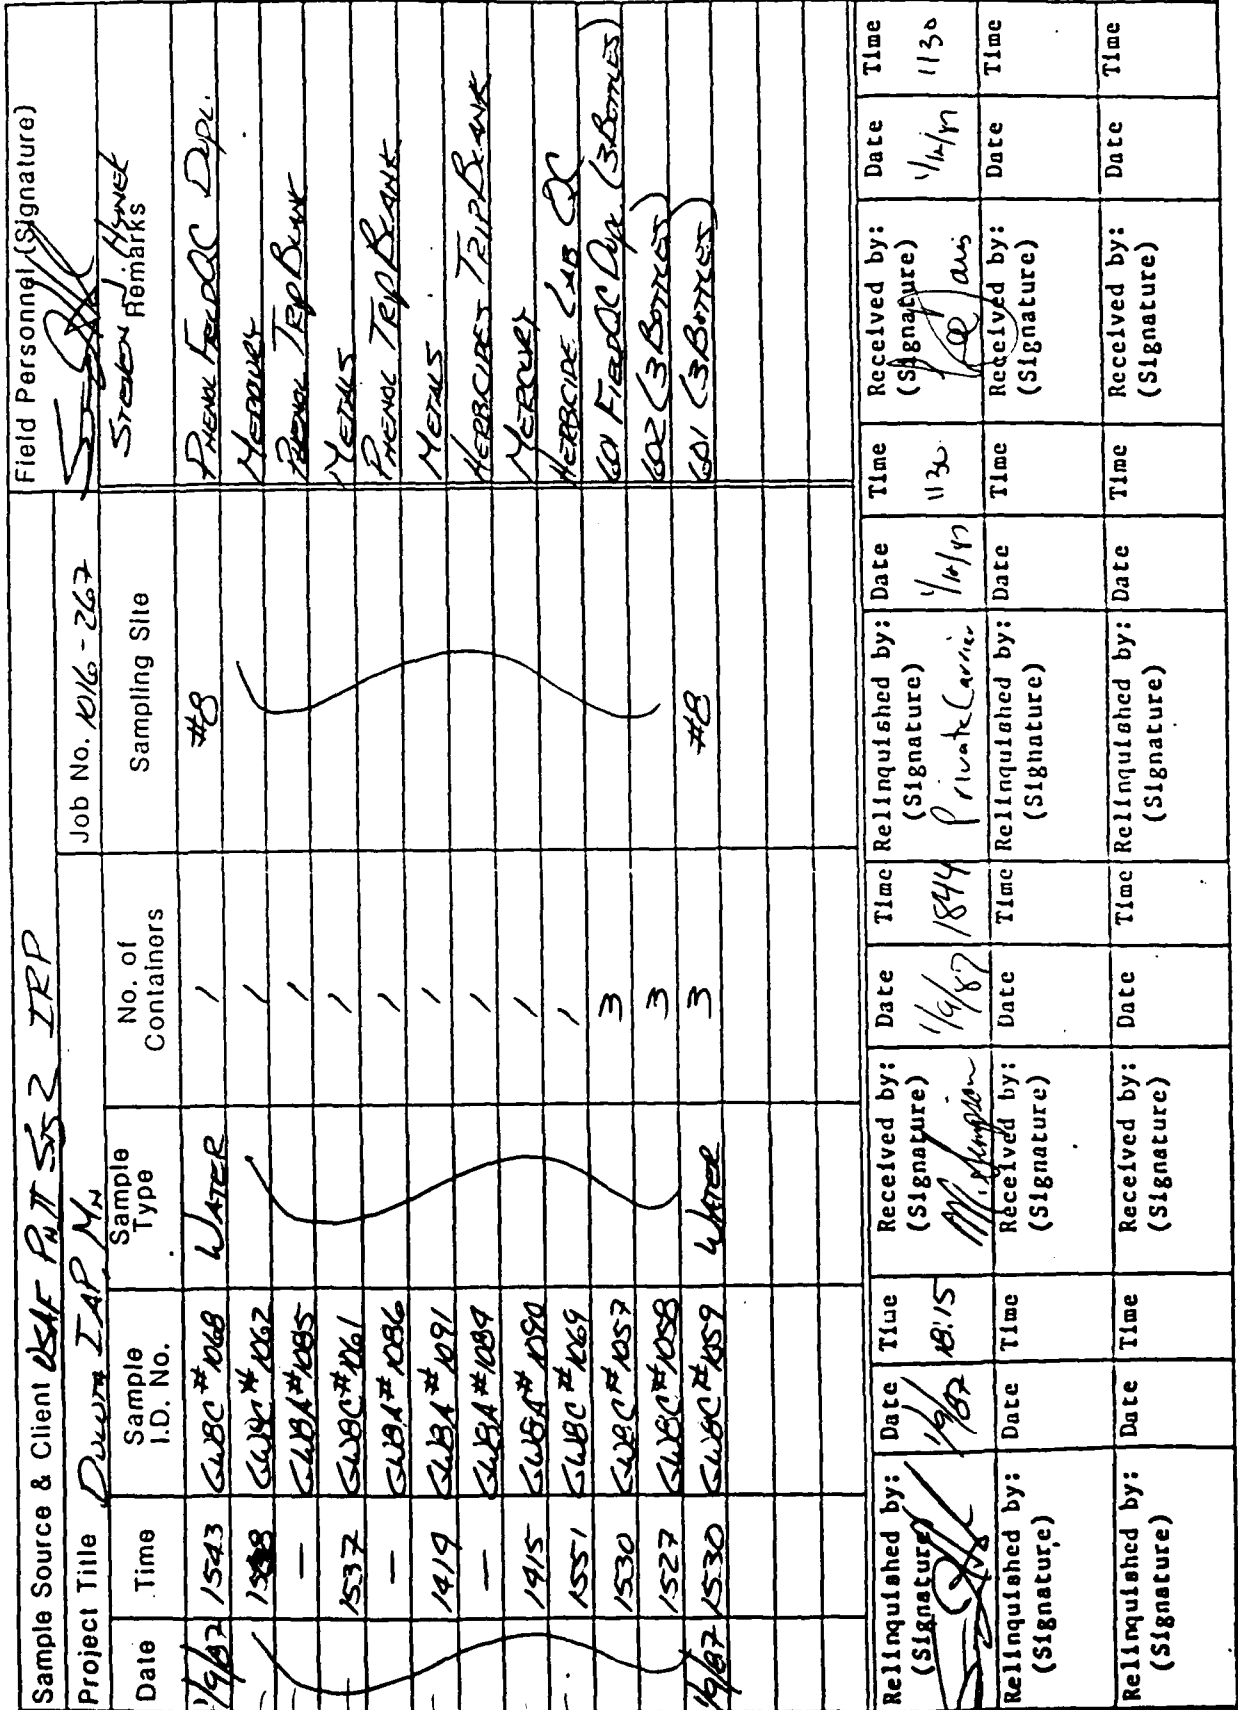 Sample Source & Client USAF PH II STG 2 IRP
Field Personnel (Signature)
Project Title Duluth IAP, MN
Job No. 1016-267
STEVEN J. HYNEK
Date Time Sample I.D. No. Sample Type No. of Containers Sampling Site Remarks
1/9/87 1543 GW8C #1068 WATER 1 #8 PHENOL FIELD QC DUPL.
GW8C #1062 1 MERCURY
— GW8A #1085 1 PHENOL TRIP BLANK
1537 GW8C #1061 1 METALS
— GW8A #1086 1 PHENOL TRIP BLANK
1419 GW8A #1091 1 METALS
— GW8A #1089 1 HERBICIDES TRIP BLANK
1415 GW8A #1090 1 MERCURY
1551 GW8C #1069 1 HERBICIDE LAB QC
1530 GW8C #1057 3 601 FIELD QC Dupl (3 BOTTLES)
1527 GW8C #1058 3 602 (3 BOTTLES)
1/9/87 1530 GW8C #1059 WATER 3 #8 601 (3 BOTTLES)
Relinquished by: (Signature) Date 1/9/87 Time 18:15 Received by: (Signature) Date 1/9/87 Time 1844 Relinquished by: (Signature) Private Carrier Date 1/12/87 Time 1130 Received by: (Signature) Date 1/12/87 Time 1130
Relinquished by: (Signature) Date Time Received by: (Signature) Date Time Relinquished by: (Signature) Date Time Received by: (Signature) Date Time
Relinquished by: (Signature) Date Time Received by: (Signature) Date Time Relinquished by: (Signature) Date Time Received by: (Signature) Date Time